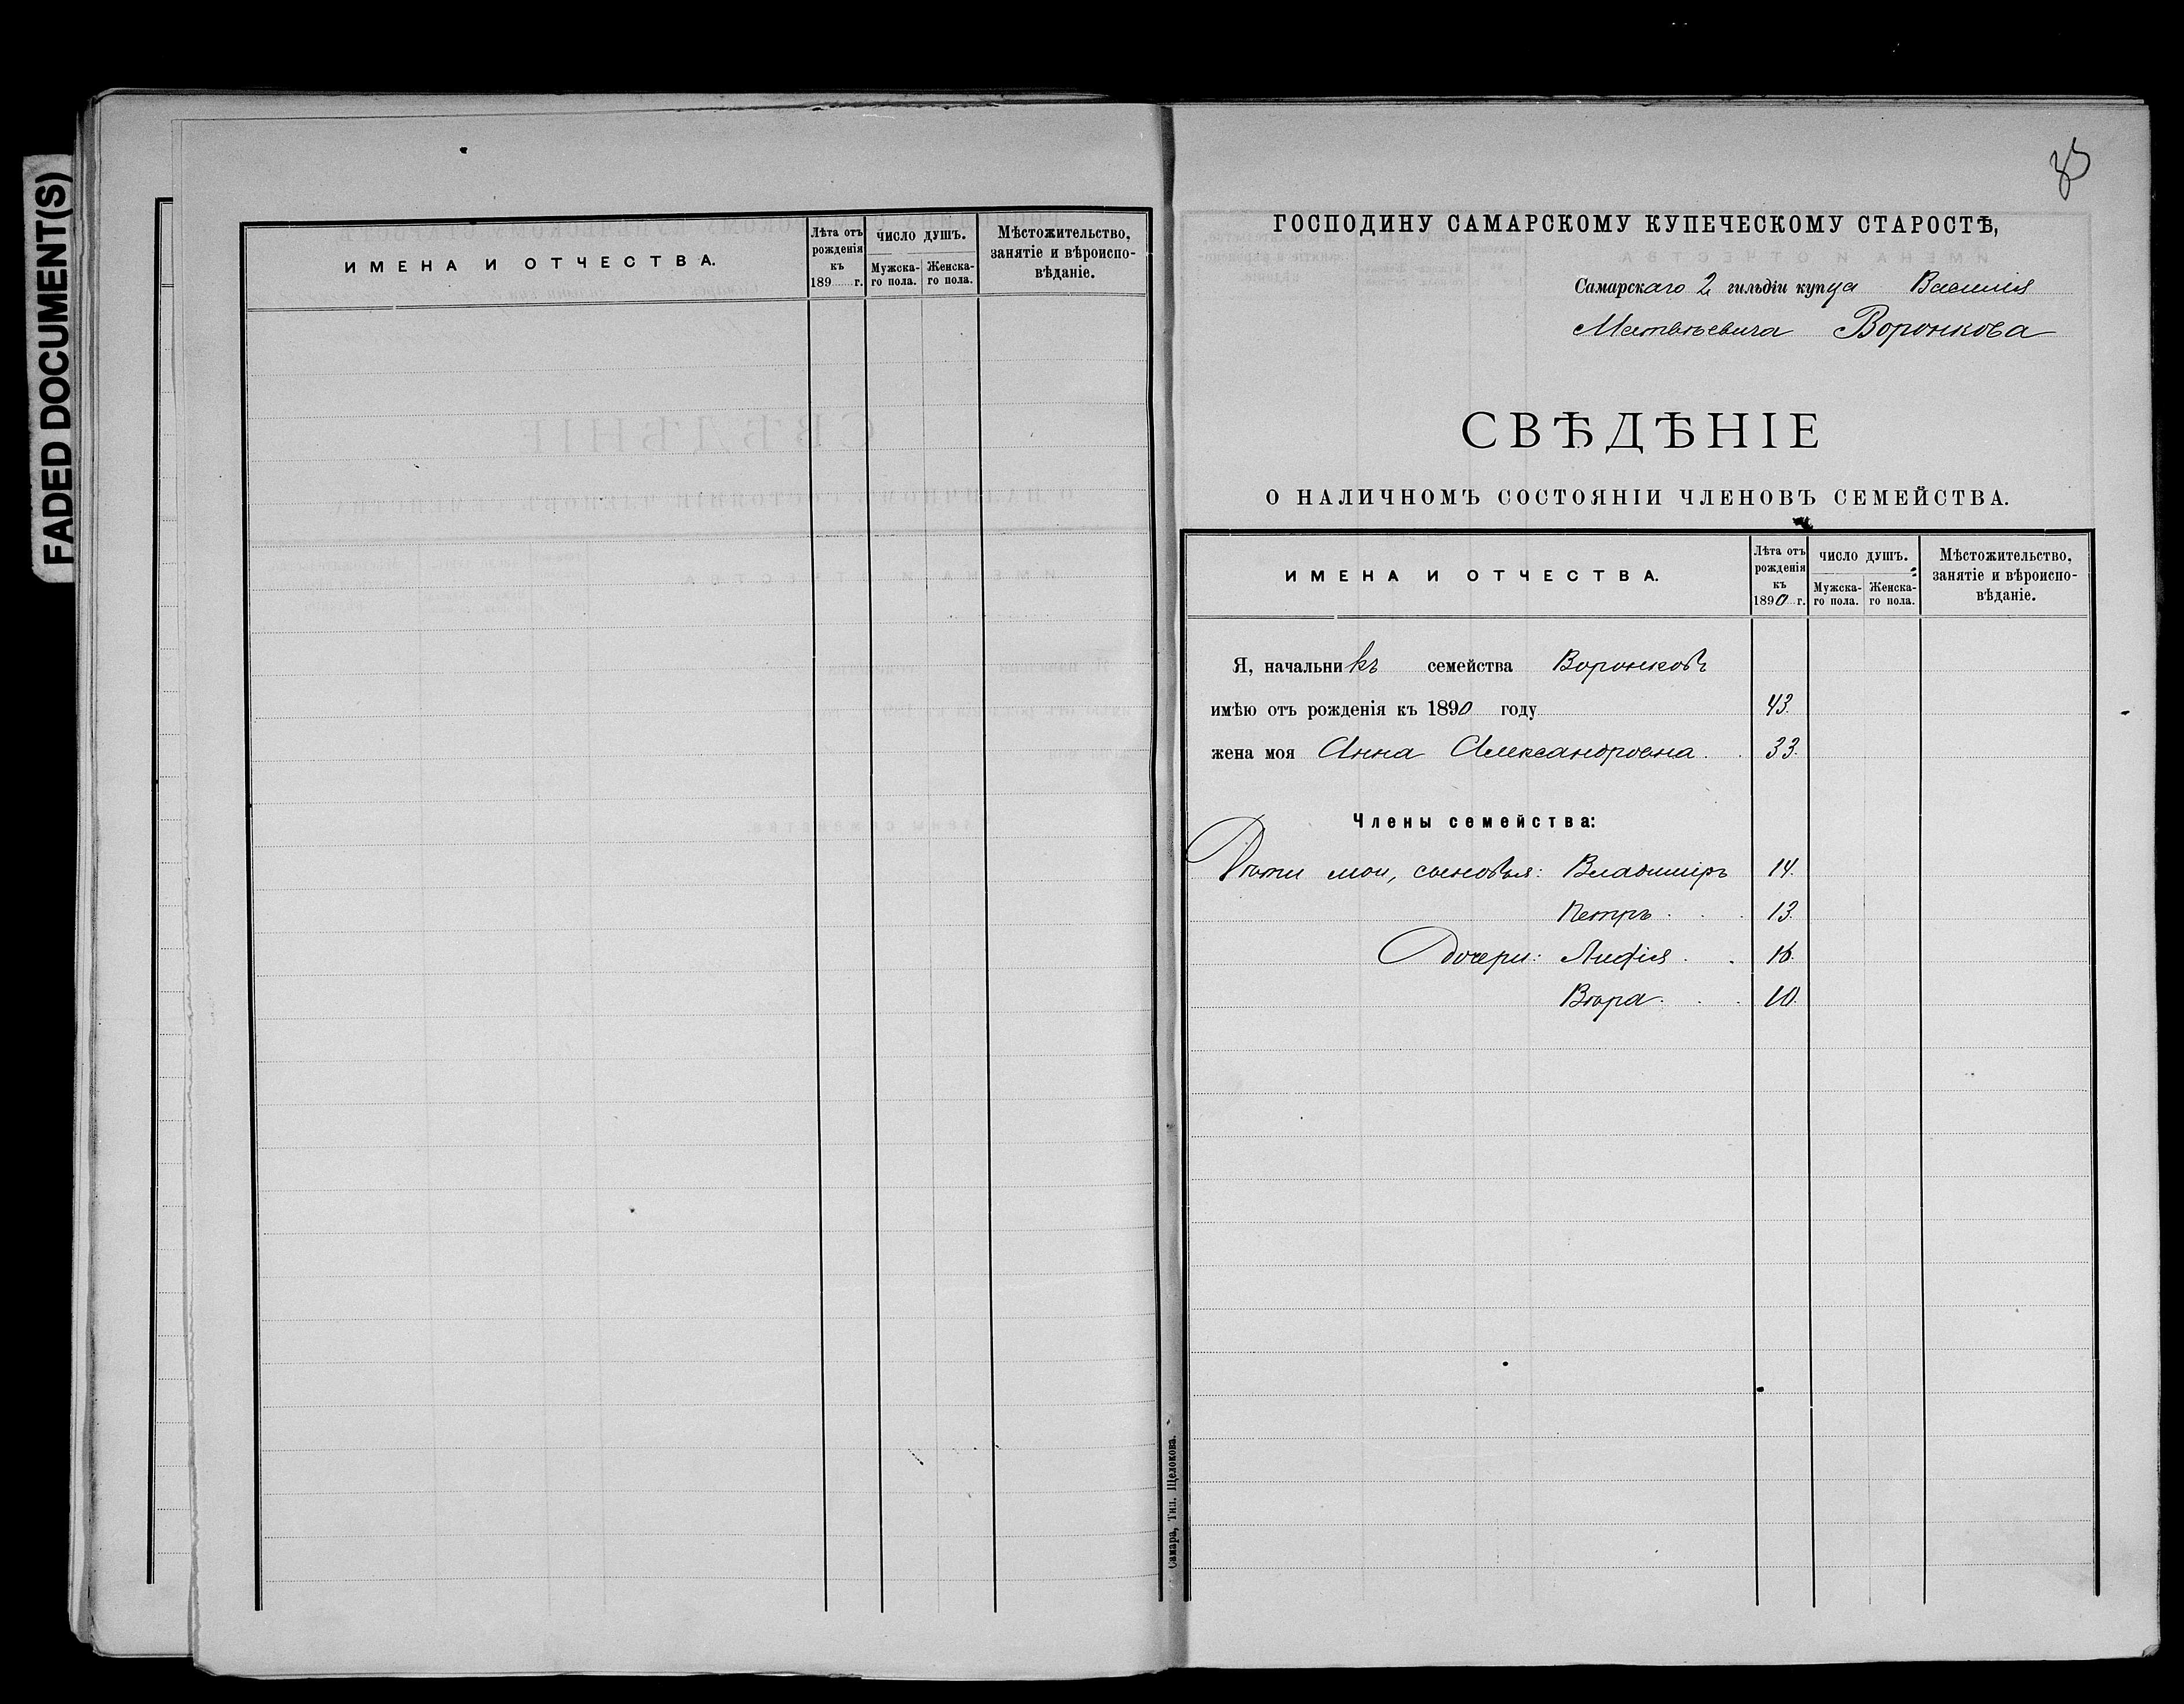 FADED DOCUMENT(S)
ИМЕНА И ОТЧЕСТВА.
Лѣта отъ рожденія къ 189 г.
ЧИСЛО ДУШЪ.
Мужска- го пола.
Женска- го пола.
Мѣстожительство, занятіе и вѣроиспо- вѣданіе.
Самара, Тип. Щелокова.
ГОСПОДИНУ САМАРСКОМУ КУПЕЧЕСКОМУ СТАРОСТѢ,
Самарскаго 2 гильдіи купца Василія
Матвѣевича Воронкова
СВѢДѢНІЕ
О НАЛИЧНОМЪ СОСТОЯНІИ ЧЛЕНОВЪ СЕМЕЙСТВА.
ИМЕНА И ОТЧЕСТВА.
Лѣта отъ рожденія къ 1890 г.
ЧИСЛО ДУШЪ.
Мужска- го пола.
Женска- го пола.
Мѣстожительство, занятіе и вѣроиспо- вѣданіе.
Я, начальникъ семейства Воронковъ
имѣю отъ рожденія къ 1890 году 43.
жена моя Анна Александровна. 33.
Члены семейства:
Дѣти мои, сыновья: Владиміръ 14.
Петръ 13.
Дочери: 16.
Вѣра 10.